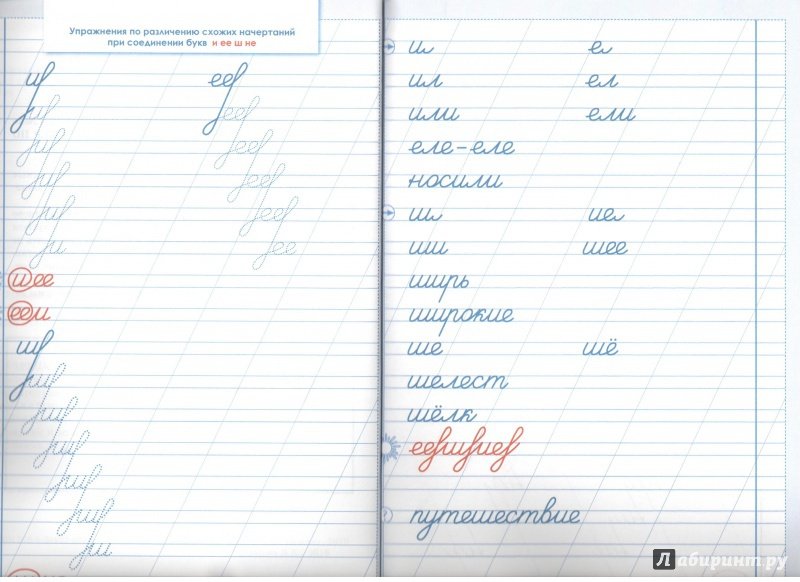 Упражнения по различению схожих начертаний
при соединении букв и ее ш не
и ее
и ее
и ее
и ее
и ее
и ее
иее
ееи
ш
ил ел
ил ел
или ели
еле-еле
носили
шл иел
ши шее
ширь
широкие
ше шё
шелест
шёлк
путешествие
Лабиринт.ру